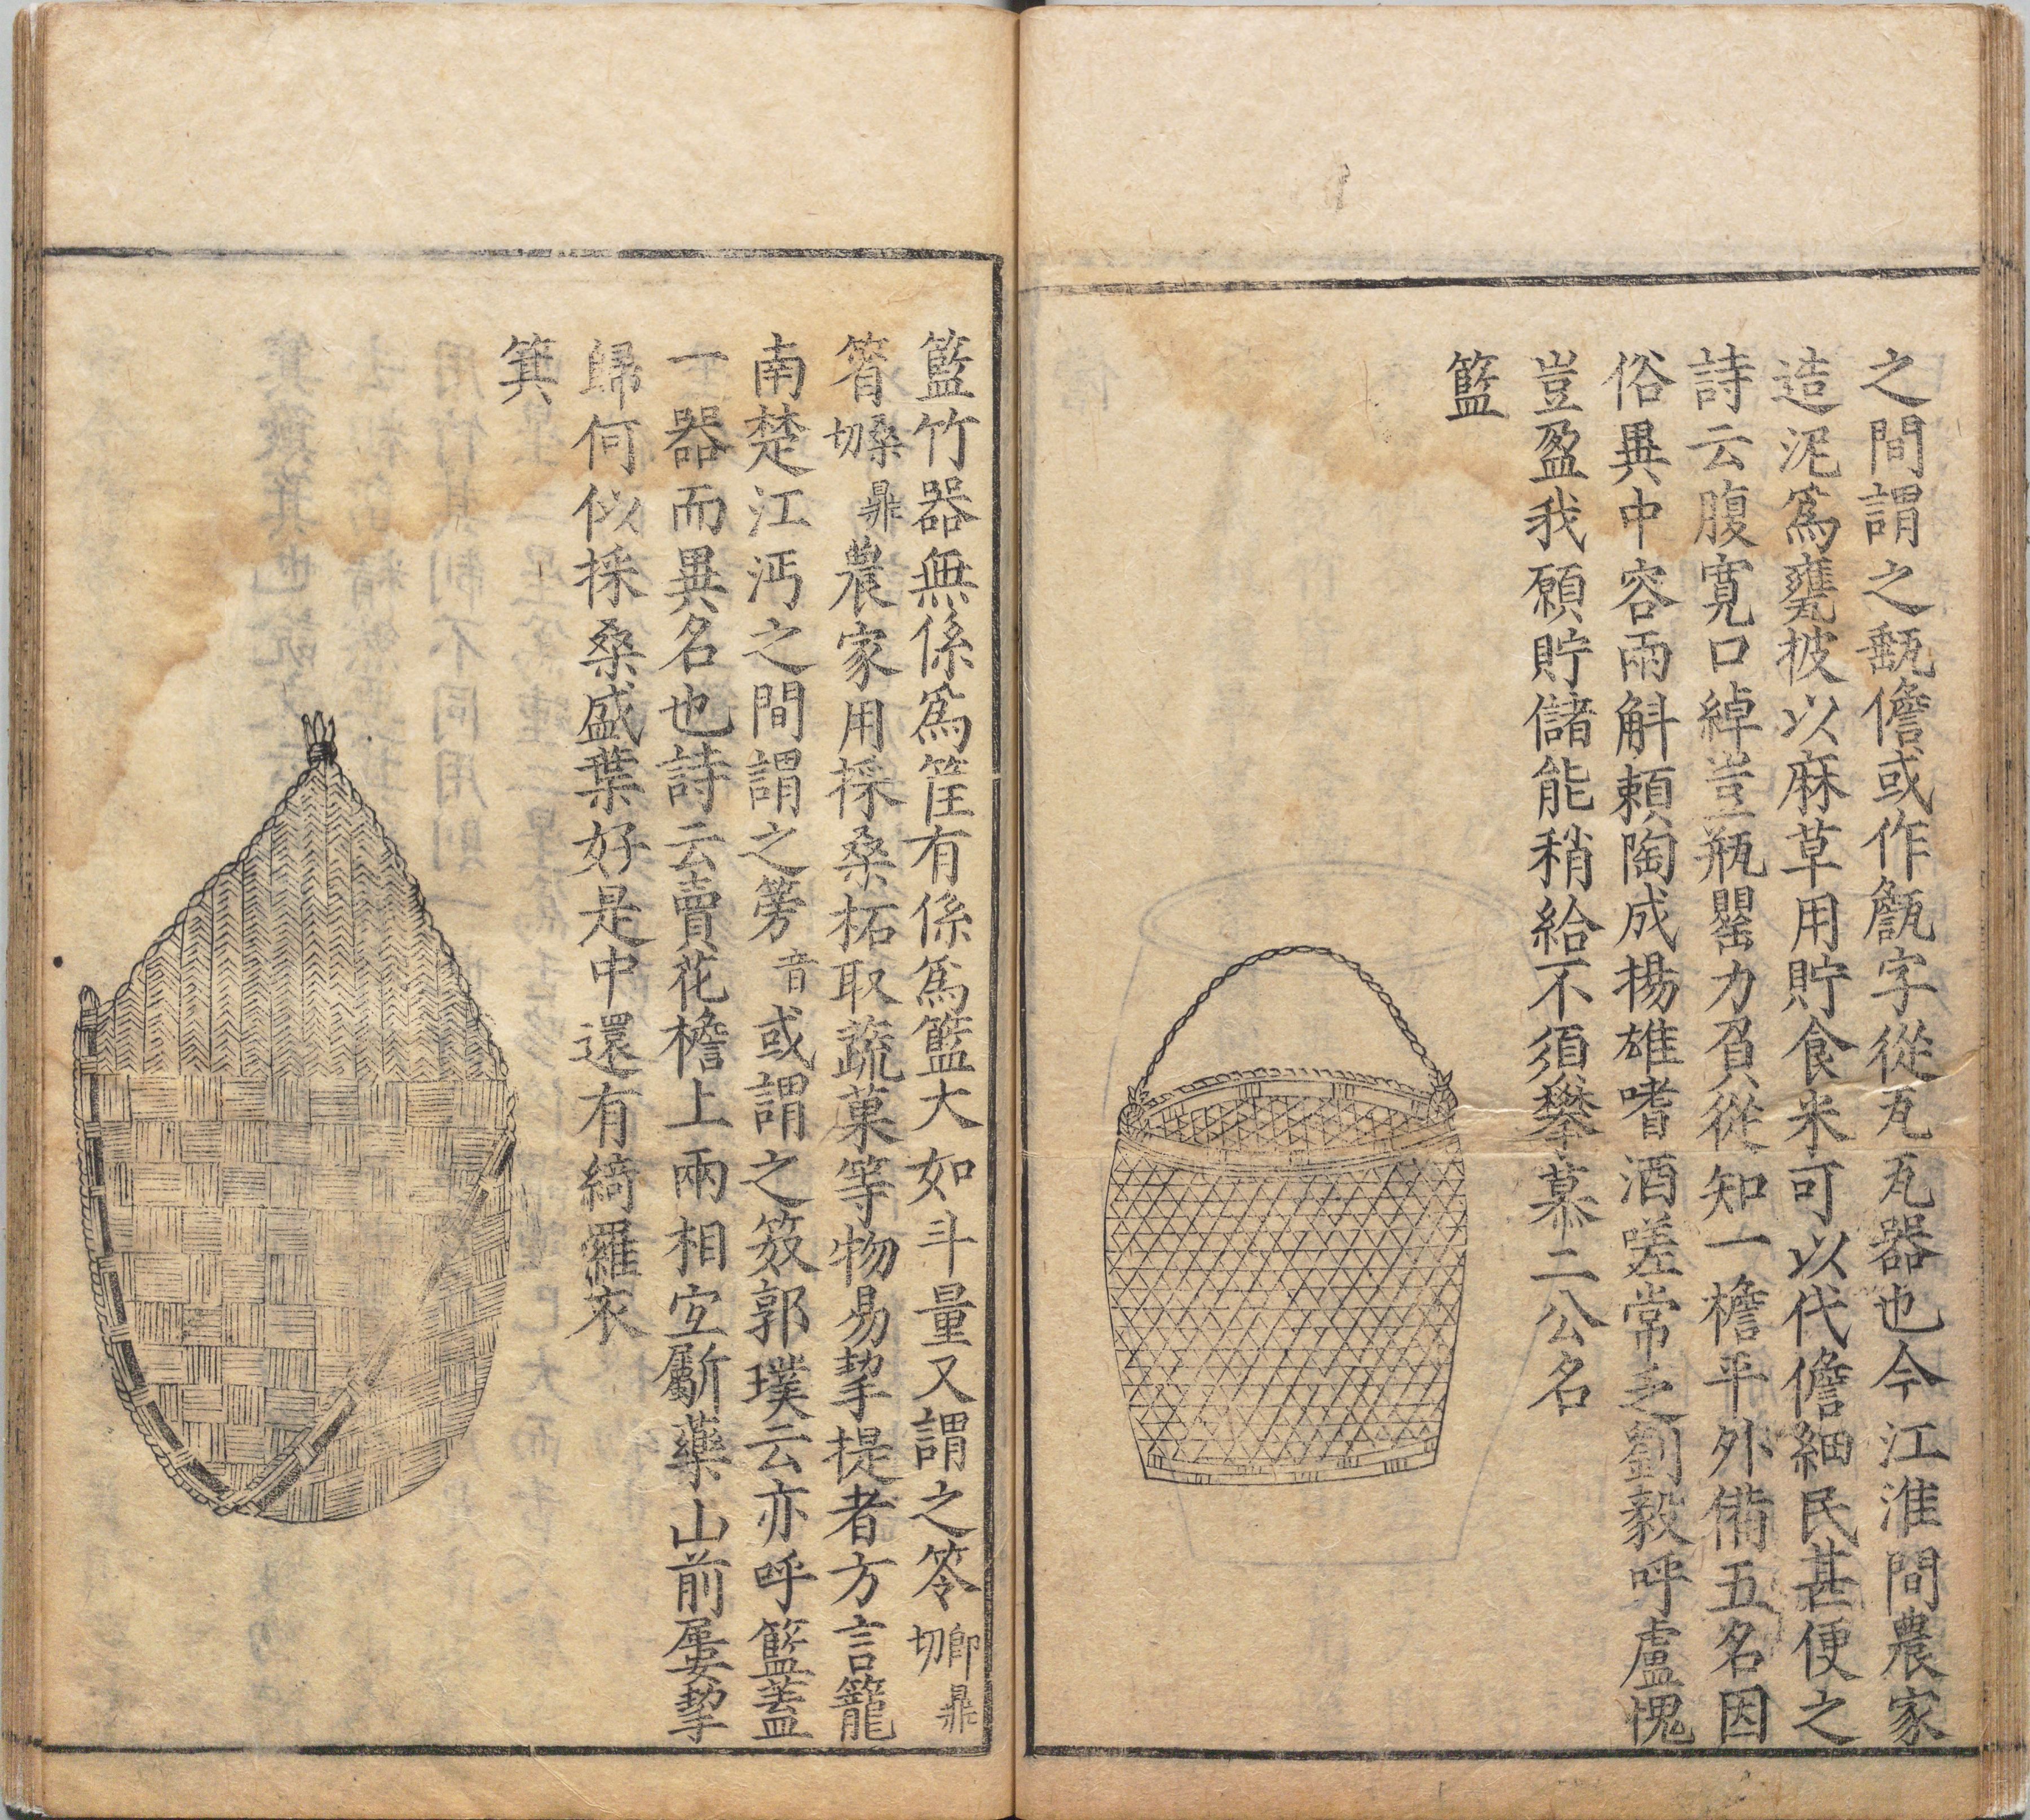 之間謂之㽃儋或作甔字從瓦瓦器也今江淮間農家
造泥爲甕披以麻草用貯食米可以代儋細民甚便之
詩云腹寛口綽豈瓶罌力負從知一檐平外備五名因
俗異中容兩斛頼陶成揚雄嗜酒嗟常乏劉毅呼盧愧
豈盈我願貯儲能稍給不須攀慕二公名
籃
籃竹器無係爲筐有係爲籃大如斗量又謂之笭郎鼎切
筲桑鼎切農家用採桑柘取蔬菓等物易挈提者方言籠
南楚江沔之間謂之篣音或謂之笯郭璞云亦呼籃蓋
一器而異名也詩云賣花檐上兩相宜斸藥山前屢挈
歸何似採桑盛葉好是中還有綺羅衣
箕